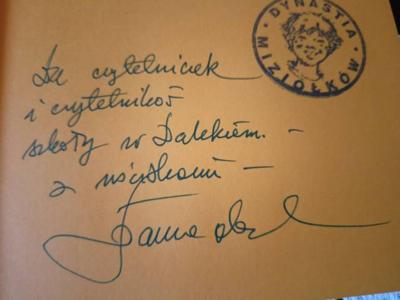 DYNASTIA MIZIOŁKÓW
Dla czytelniczek
i czytelników
szkoły w Dalekiem. –
z uściskami –
Joanna Olech